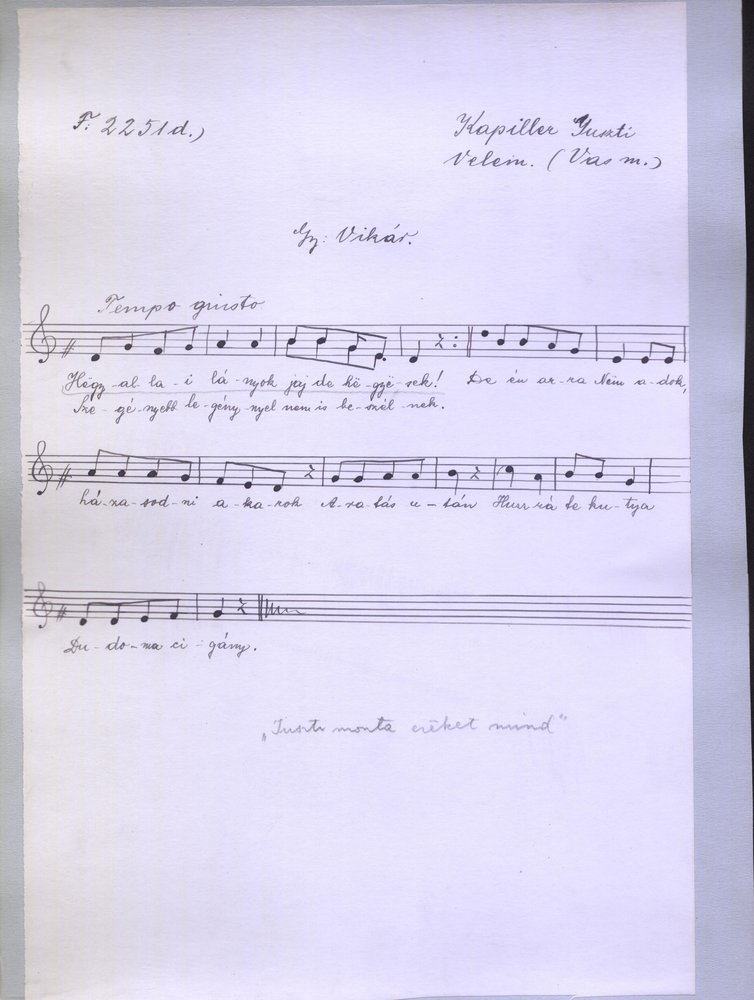 F. 2251d.)
Kapiller Juszti
Velem. (Vas m.)
Gy: Vikár.
Tempo giusto
Hëgy-al-la-i lá-nyok jaj de hë-gyë-sek! De én ar-ra Nem a-dok,
Sze-gé-nyebb le-gény-nyel nem is be-szél-nek.
há-za-sod-ni a-ka-rok A-ra-tás u-tán Hurr rá te ku-tya
Du-do-ma ci-gány.
„Juszti monta ezëket mind"